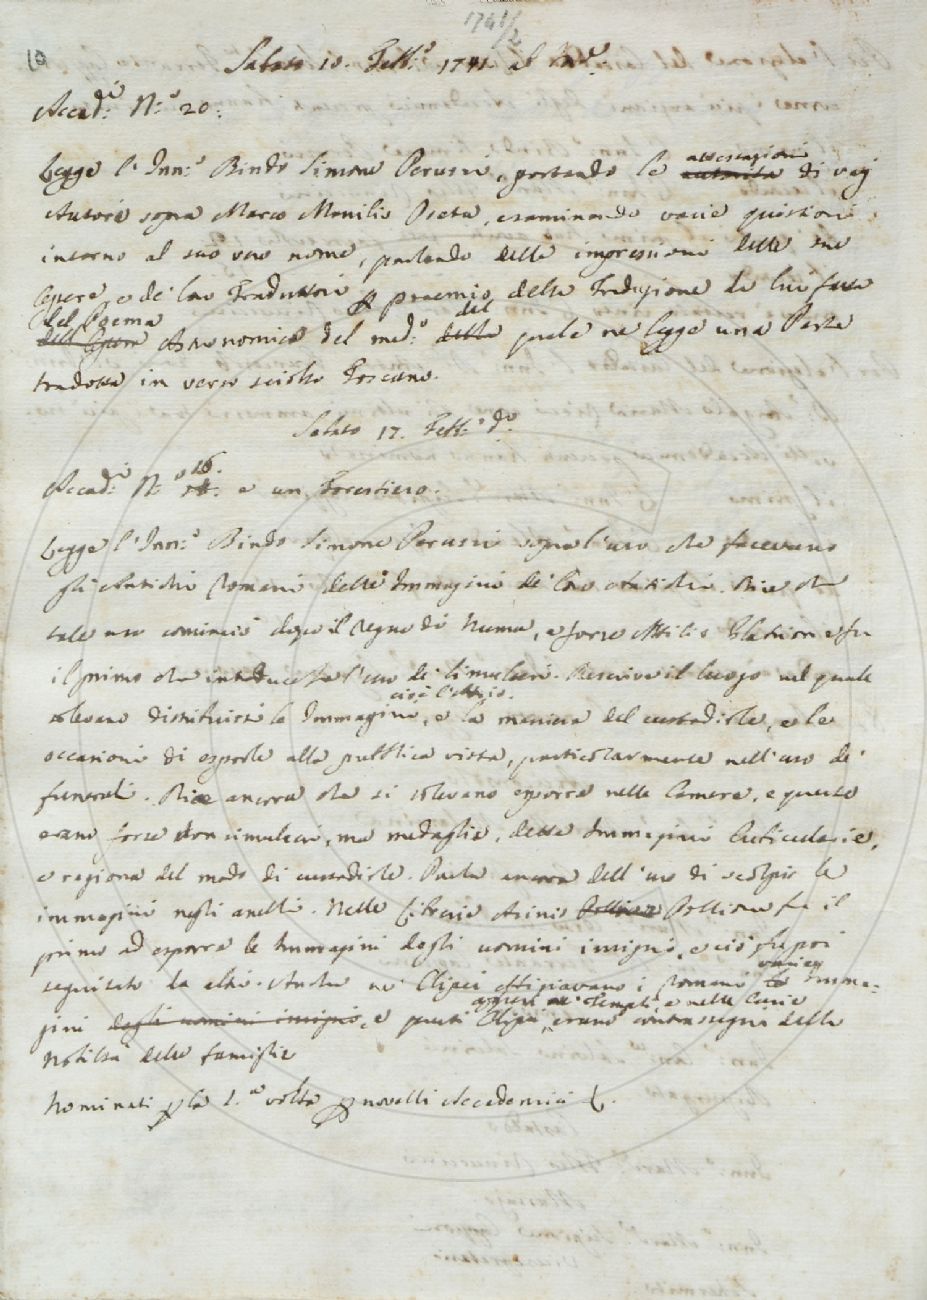 1741/2
10
Sabato 10. Febb.º 1741. al
Accad.ci N.º 20.
Legge l'Inn.º Bindo Simone Peruzzi, portando le attestazioni autorità di varj
Autori sopra Marco Manilio Poeta, esaminando varie questioni
intorno al suo vero nome, parlando delle impressioni delle sue
Opere, e de' loro Traduttori per proemio della Traduzione da lui fatta
del Poema
dell'Opera Astronomico del med.º della del quale ne legge una Parte
tradotta in verso sciolto Toscano.
Sabato 17. Febb.º d.º
Accad.ci N.º 16. e un Forestiero.
Legge l'Inn.º Bindo Simone Peruzzi sopra l'uso che facevano
gli Antichi Romani delle Immagini de' loro Antichi. Dice che
tale uso cominciò dopo il Regno di Numa, e forse Attilio Glabrione fu
il primo che introducesse l'uso de' simulacri. Descrive il luogo nel quale
cioè l'Atrio.
solevano distribuirsi le Immagini, e la maniera del custodirle, e le
occasioni di esporle alla pubblica vista, particolarmente nell'uso de'
funerali. Dice ancora che si solevano esporre nelle Camere, e queste
erano forse non simulacri, ma medaglie, dette Immagini Cubiculari,
e ragiona del modo di custodirle. Parla ancora dell'uso di scolpir le
immagini negli anelli. Nelle Librerie Asinio Pollione fu il
primo ad esporre le Immagini degli uomini insigni, e ciò fu poi
seguitato da altri. Anche ne' Clipei effigiavano i Romani le varie Imma-
appesi ne' Templi, e nelle Curie
gini degli uomini insigni, e questi Clipei, erano contrassegni della
Nobiltà delle famiglie
Nominati per la 1.a volta per novelli Accademici